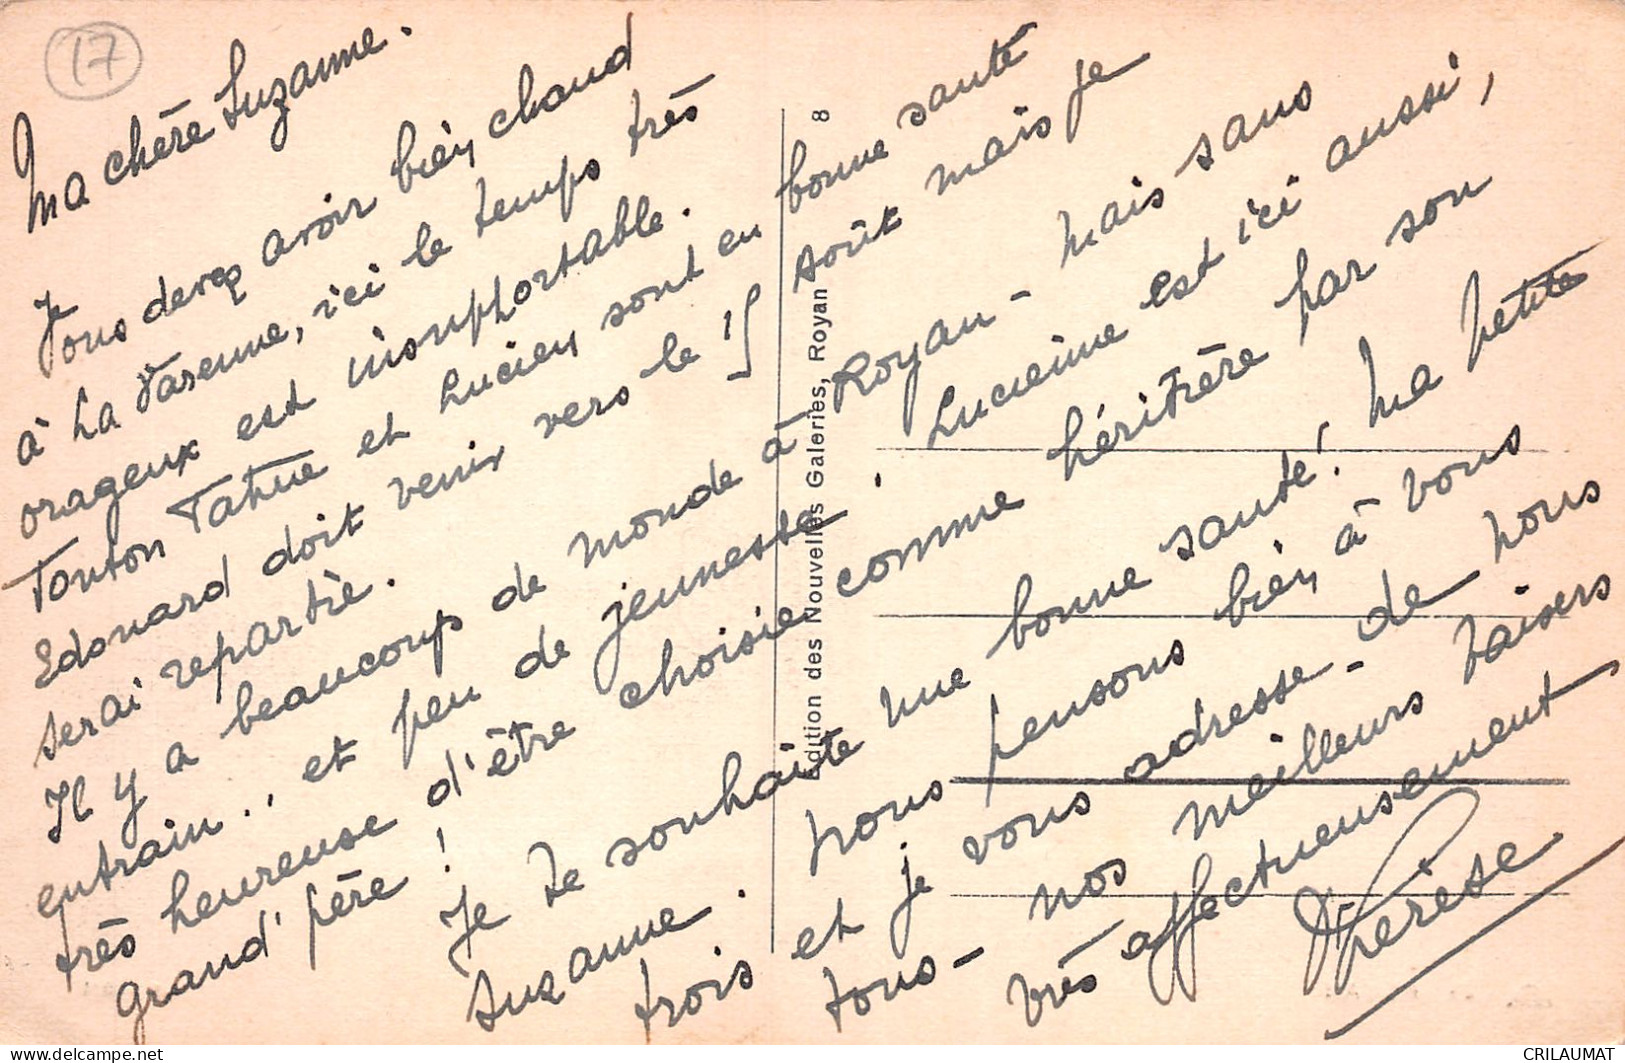 17
Ma chère Suzanne.
Vous devez avoir bien chaud
à La Varenne, ici le temps très
orageux est insuphortable.
Tonton Tatue et Lucien sont en bonne santé
Edouard doit venir vers le 15 août mais je
serai repartie.
Il y a beaucoup de monde à Royan - mais sans
entrain.. et peu de jeunesse. Lucienne est ici aussi,
très heureuse d'être choisie comme héritière par son
grand' père !
Je te souhaite une bonne santé! Ma petite
Suzanne. nous pensons bien à vous
trois et je vous adresse - de nous
tous - nos meilleurs baisers
très affectueusement
Thérèse
Edition des Nouvelles Galeries, Royan 8
CRILAUMAT